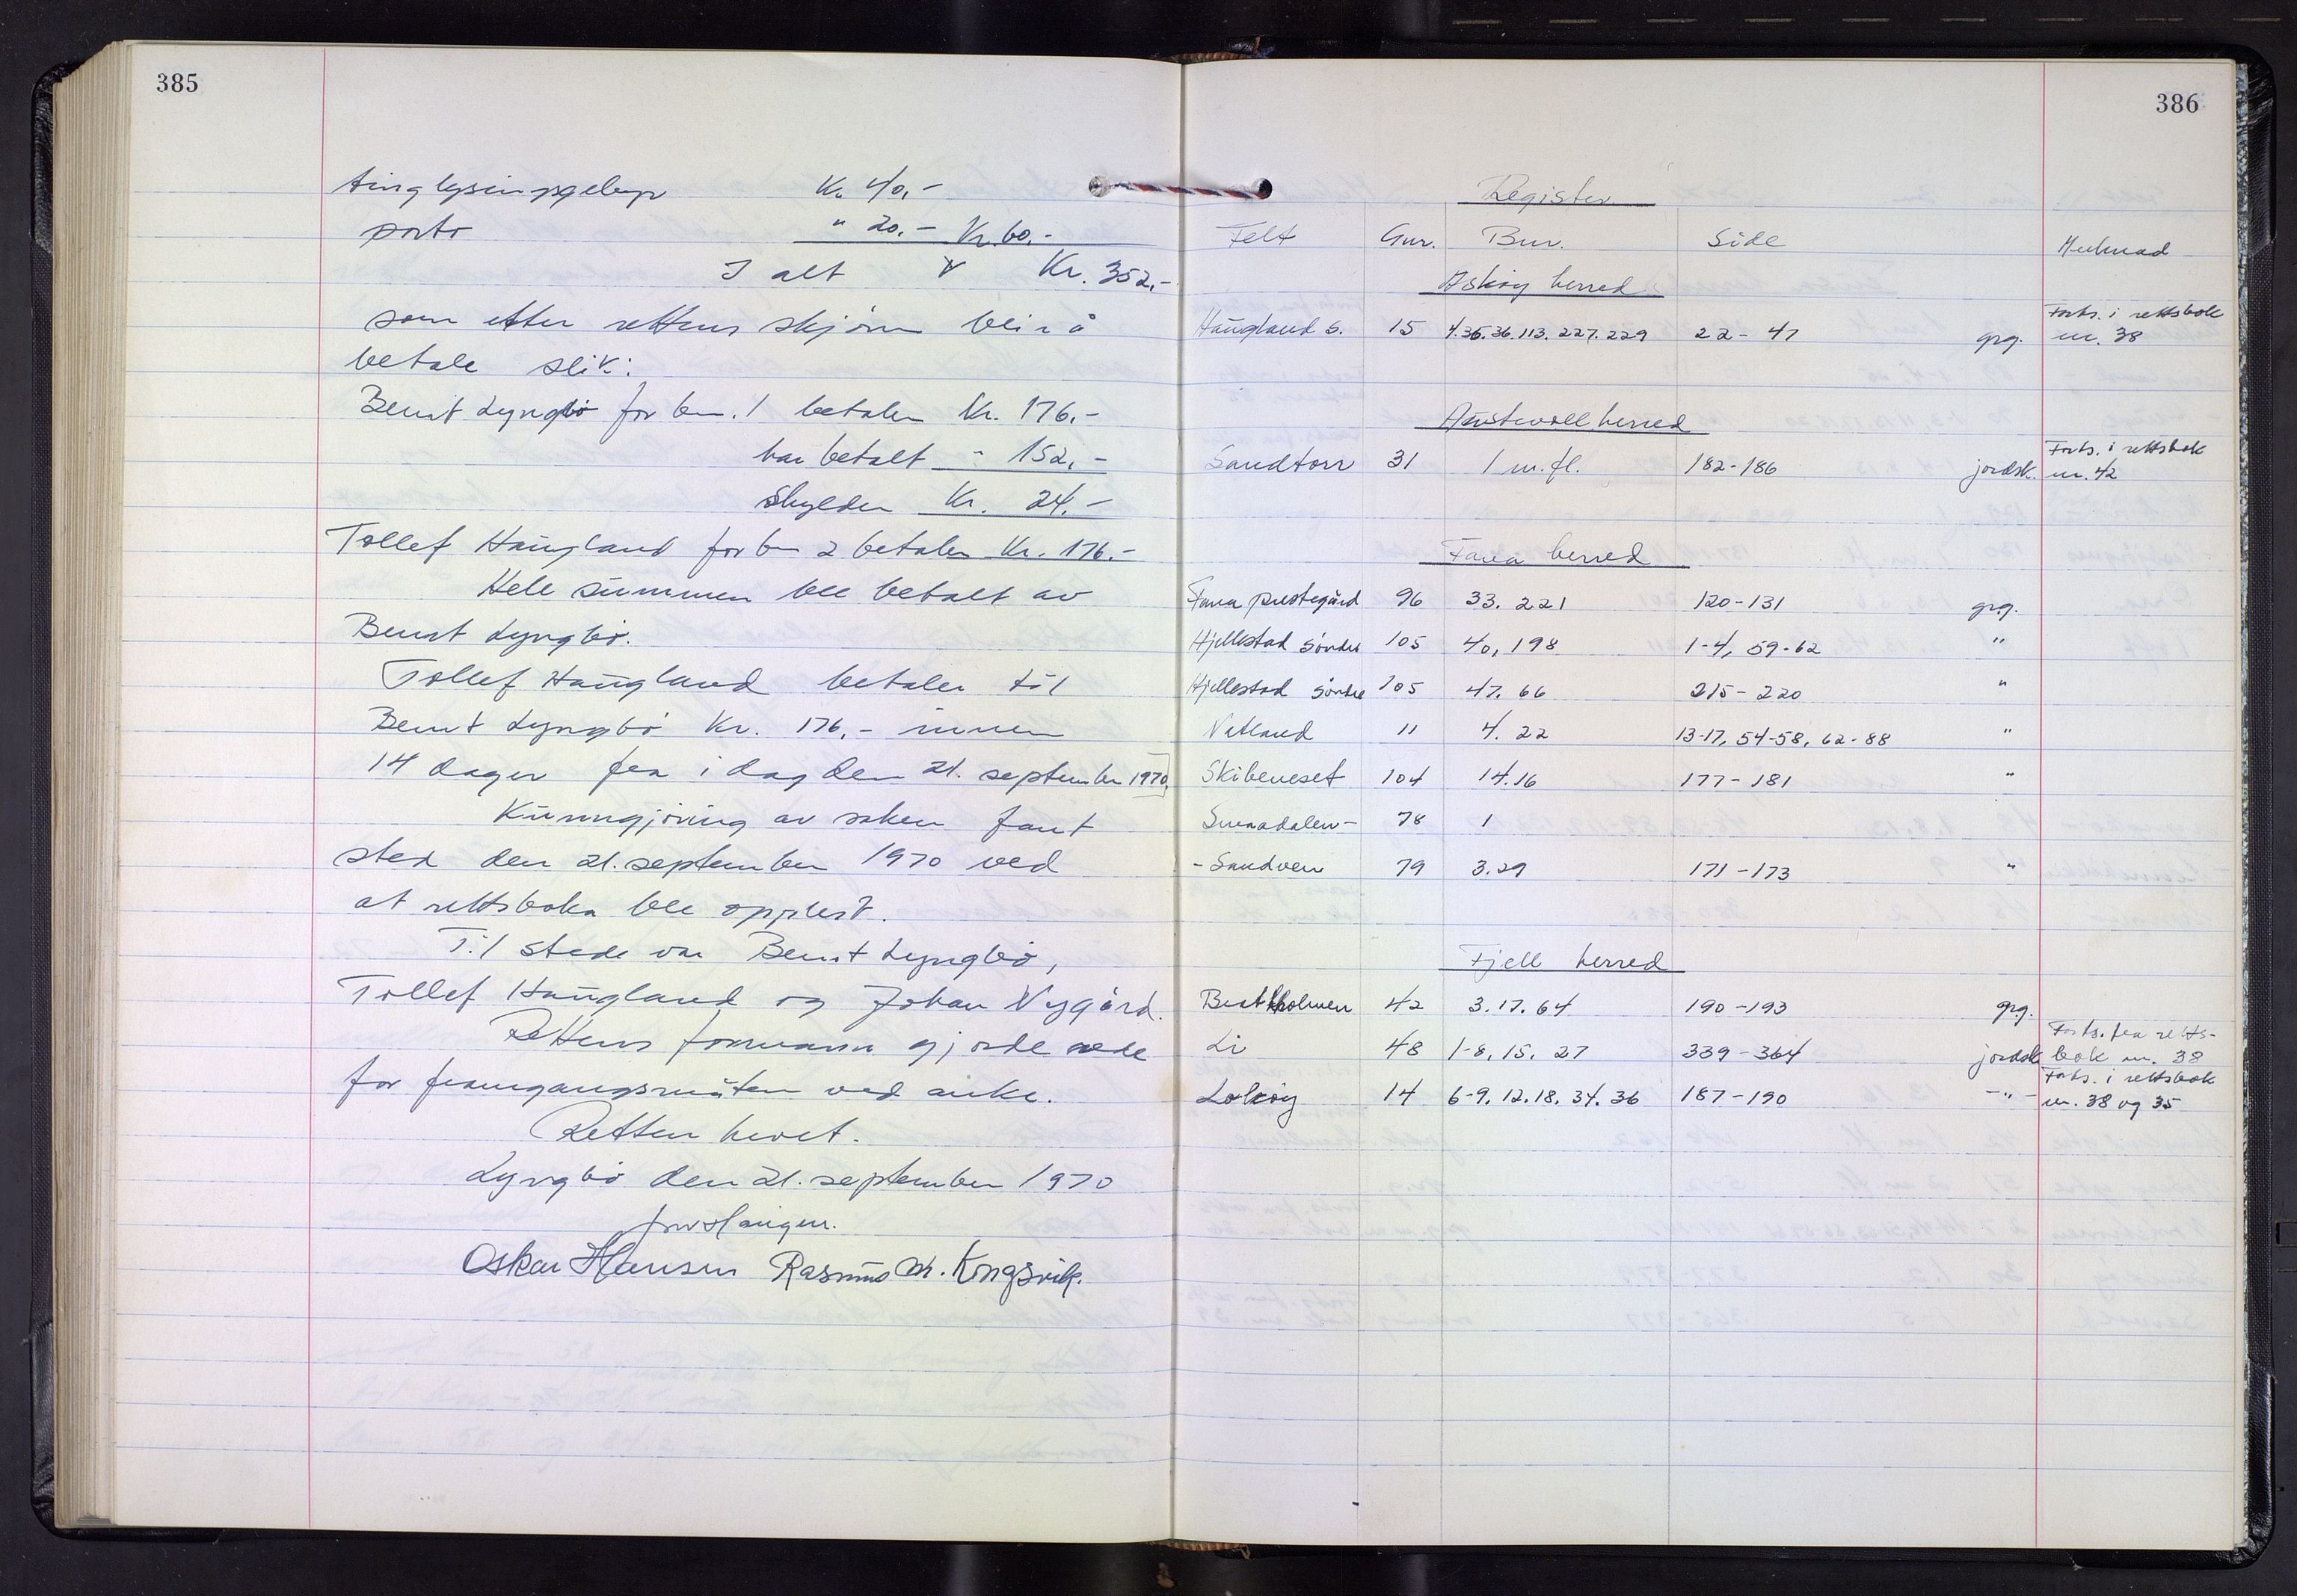 385
tinglysingsgebyr Kr. 40,-
porto " 20.- Kr. 60.-
I alt Kr. 352.-
som etter rettens skjønn blir å
betale slik:
Bernt Lyngbø for bnr. 1 betaler Kr. 176.-
har betalt " 152,-
Skylder Kr. 24.-
Tollef Haugland for bn 2 betaler Kr. 176.-
Hele summen ble betalt av
Bernt Lyngbø.
Tollef Haugland betaler til
Bernt Lyngbø Kr. 176,- innen
14 dager fra i dag den 21. september 1970.
Kunngjøring av saken fant
sted den 21. september 1970 ved
at rettsboka ble opplest.
Til stede var Bernt Lyngbø,
Tollef Haugland og Johan Nygård.
Rettens formann gjorde rede
for framgangsmåten ved anke.
Retten hevet.
Lyngbø den 21. september 1970
Oskar Hansen Rasmus M. Kongsvik.
386
Register
Felt Gnr. Bnr. Side Merknad
Askøy herred
Haugland s. 15 4.35.36.113.227.229 22-47 grg. Forts. i rettsbok
nr. 38
Austevoll herred
Sandtorv 31 1 m.fl. 182-186 jordsk. Forts. i rettsbok
nr. 42
Fana herred
Fana prestegård 96 33. 221 120-131 grg.
Hjellestad søndre 105 40, 198 1-4, 59-62 "
Hjellestad søndre 105 47. 66 215-220 "
Natland 11 4. 22 13-17, 54-58, 62-88 "
Skibeneset 104 14.16 177-181 "
Smøradalen- 78 1
-Sandven 79 3.29 171-173 "
Fjell herred
Brattholmen 42 3. 17. 64 190-193 grg.
Li 48 1-8, 15. 27 339-364 jordsk Forts. fra retts-
bok nr. 38
Lokøy 14 6-9, 12. 18. 34. 36 187-190 -"- Forts. i rettsbok
nr. 38 og 35